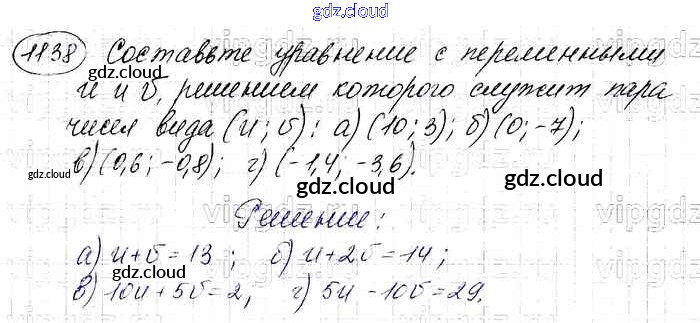 gdz.cloud
1138 Составьте уравнение с переменными
gdz.cloud
u и v, решением которого служит пара
чисел вида (u; v): а) (10; 3); б) (0; -7);
gdz.cloud
в) (0,6; -0,8); г) (-1,4; -3,6).
gdz.cloud
gdz.cloud
Решение:
а) u+v=13; б) u+2v=14;
gdz.cloud
gdz.cloud
в) 10u+5v=2, г) 5u-10v=29.
gdz.cloud